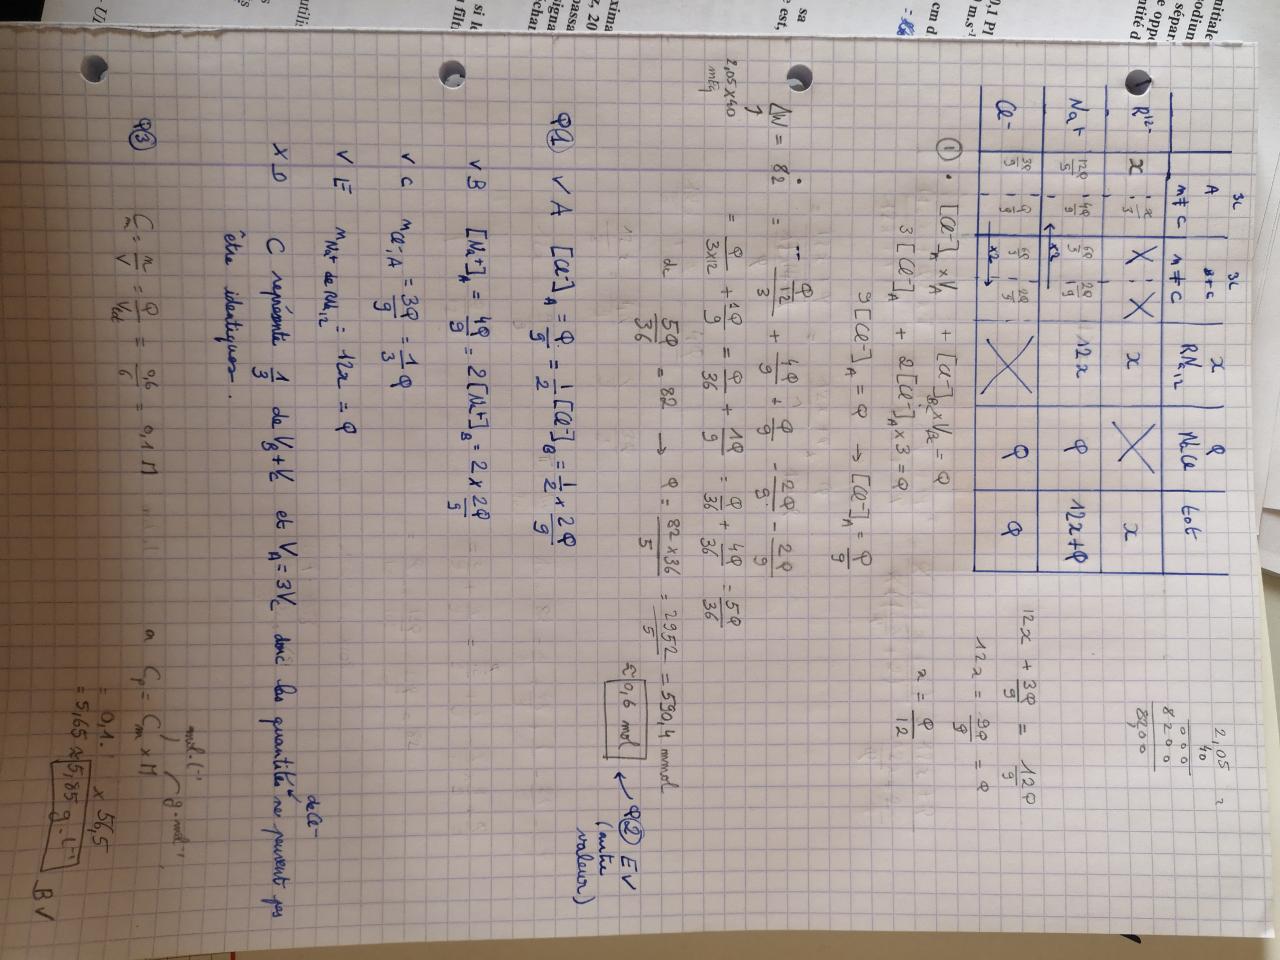 A
B+C
x
φ
n
≠
c
n
≠
c
RNa12
NaCl
tot
R12-
x
x/3
x
x
Na+
12φ/9
4φ/9
6φ/9
2φ/9
12x
φ
12x+φ
Cl-
3φ/9
φ/9
6φ/9
2φ/9
φ
φ
x2
x2
2,05
40
000
8200
8200
12x + 3φ/9 = 12φ/9
12x = 9φ/9 = φ
x = φ/12
① • [Cl-]A x VA + [Cl-]B x VBC = φ
3[Cl-]A + 2[Cl-]A x 3 = φ
9[Cl-]A = φ → [Cl-]A = φ/9
ΔN = 82 = φ/12/3 + 4φ/9 + φ/9 - 2φ/9 - 2φ/9
2,05 x 40
mEq
= φ/3x12 + 1φ/9 = φ/36 + 1φ/9 = φ/36 + 4φ/36 = 5φ/36
5φ/36 = 82 → φ = 82x36/5 = 2952/5 = 590,4 mmol
≈ 0,6 mol
Q② EV
(autre
valeur)
Q① V A [Cl-]A = φ/9 = 1/2 [Cl-]B = 1/2 x 2φ/9
V B [Na+]A = 4φ/9 = 2[Na+]B = 2 x 2φ/9
V C nCl-,A = 3φ/9 = 1/3 φ
V E nNa+ de RNa12 = 12x = φ
X D C représente 1/3 de VB+VC et VA = 3VC donc les quantités de Cl- ne peuvent pas
être identiques.
Q③ Cm = n/V = φ/Vtot = 0,6/6 = 0,1 M
Cp = Cm x M
mol.L-1
g.mol-1
= 0,1 x 56,5
= 5,65 ≈ 5,85 g.L-1
B V